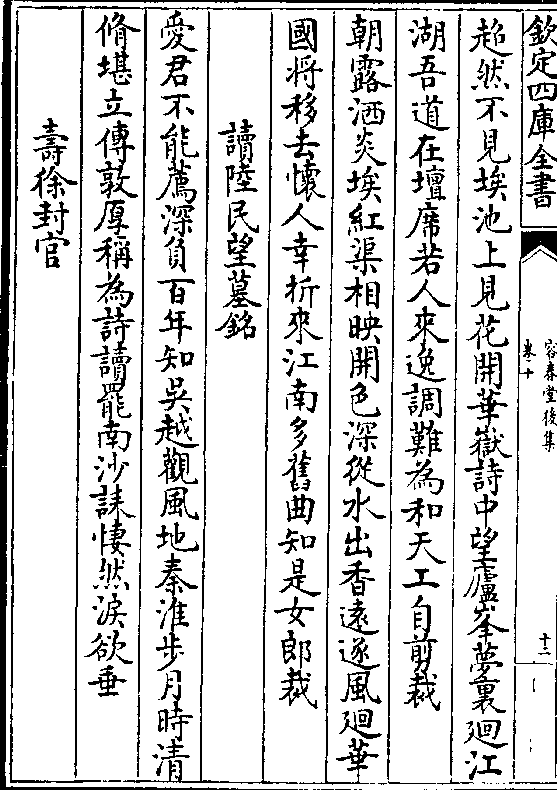 欽定四庫全書
容春堂後集
卷十
十二
超然不見埃池上見花開華嶽詩中望廬峯夢裏廻江
湖吾道在壇席若人來逸調難為和天工自剪裁
朝露洒炎埃紅渠相映開色深從水出香遠逐風廻華
國將移去懷人幸折來江南多舊曲知是女郎裁
讀陸民望墓銘
愛君不能薦深負百年知吳越觀風地秦淮步月時清
脩堪立傳敦厚稱為詩讀罷南沙誄悽然淚欲垂
壽徐封官